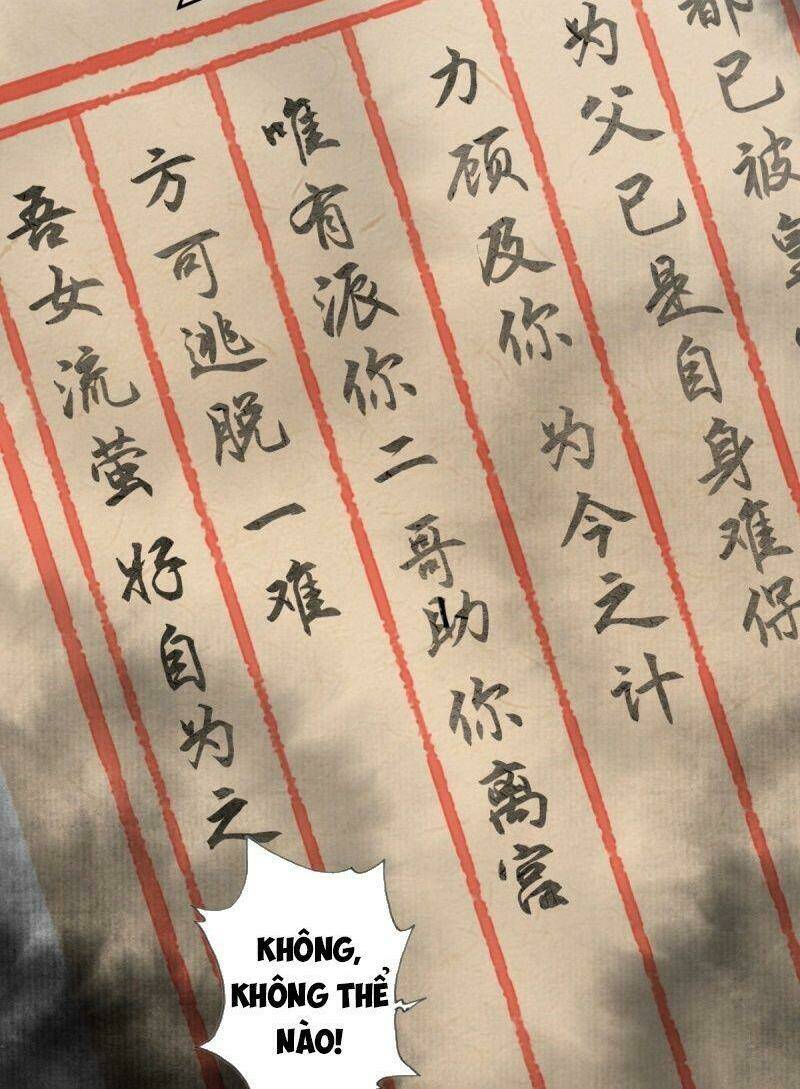 都已被皇
为父已是自身难保
力顾及你 为今之计
唯有派你二哥助你离宫
方可逃脱一难
吾女流萤 好自为之
KHÔNG,
KHÔNG THỂ
NÀO!